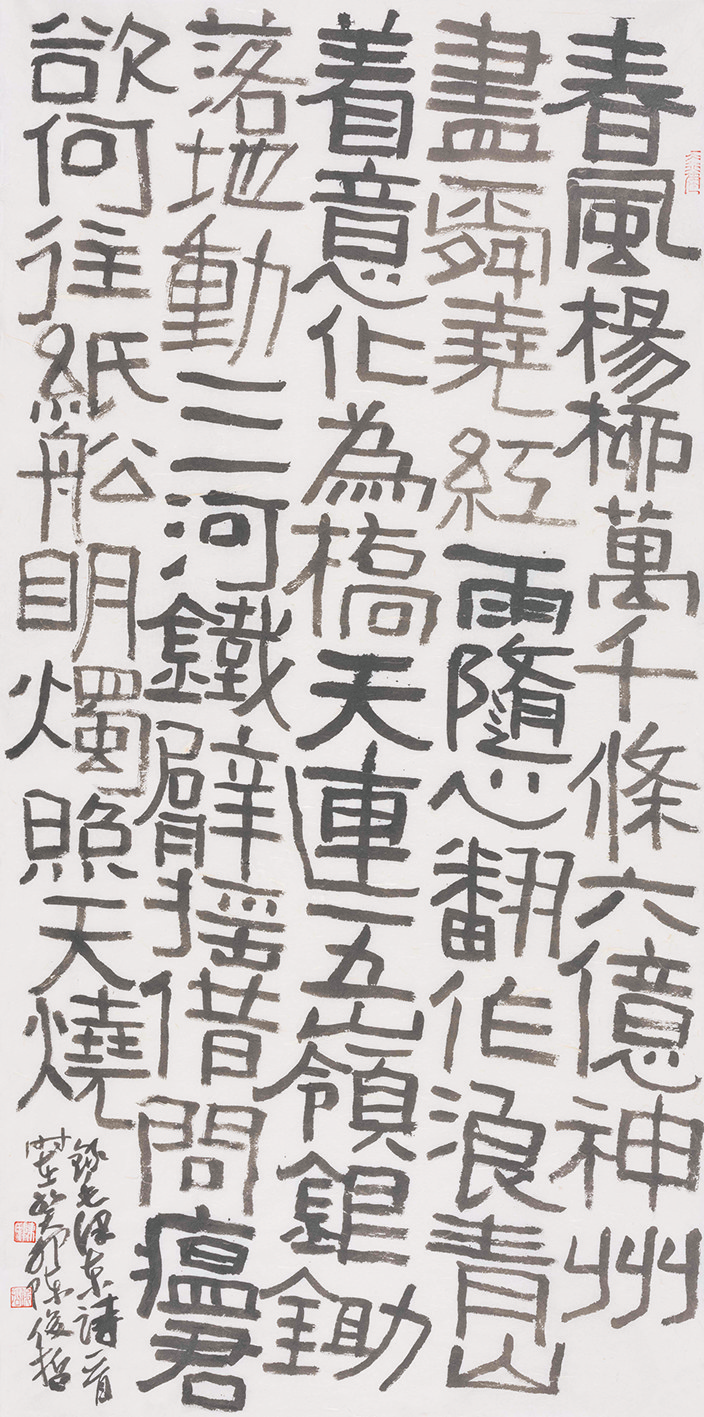 春風楊柳萬千條六億神州
盡舜堯紅雨隨心翻作浪青山
着意化為橋天連五嶺銀鋤
落地動三河鐵臂摇借問瘟君
欲何往紙船眀燭照天燒
錄毛泽东詩一首
时在癸卯陈俊哲